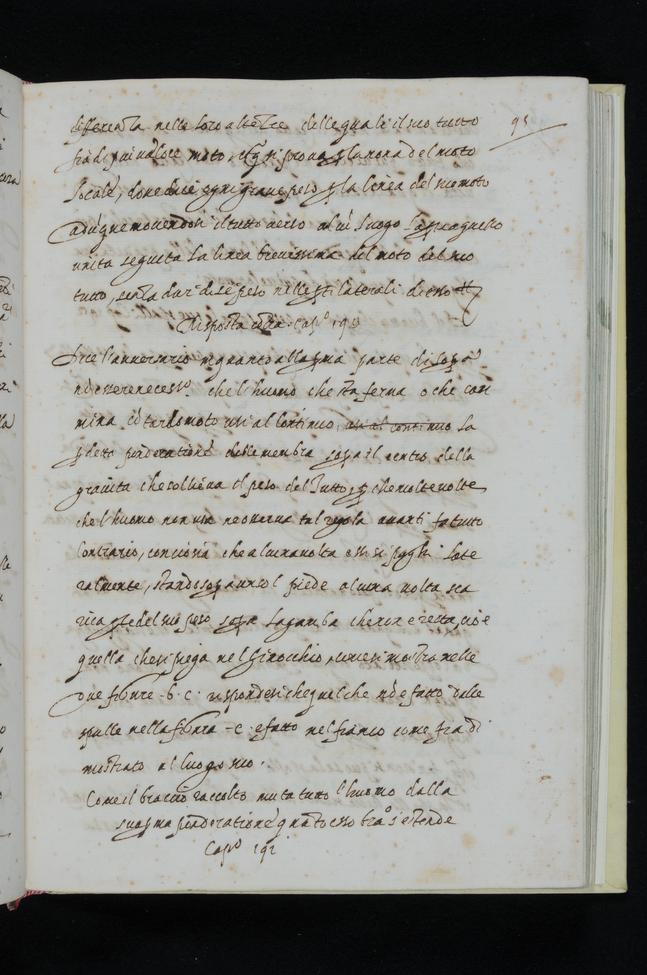 95
differenza nelle loro altezze delle quali il suo tutto
fia di piu veloce moto, e q.o si prova p la nona del moto
locale, dove dice ogni grave pesa p la linea del suo moto
adūque movendosi il tutto verso alcū luogo la parte a quello
unita seguita la linea brevissima del moto del suo
tutto, senza dar di se peso nelle pti laterali di esso tto
Risposta cōtra. Cap.o 190
Dice l'avversario in quanto alla pma parte di sopa
nō esser necess.o che l'huomo che sta fermo o che cam
mina cō tardo moto usi al continuo, usi al continuo la
p detta ponderatione delle membra sopa il centro della
gravita che sostiēna il peso del Tutto, p che molte volte
che l'huomo non usa ne osserva tal regola avanti fa tutto
l'contrario, conciosia che alcuna volta esso si piegha late
ralmente, stando sop a un sol piede alcuna volta sca
rica pte del suo peso sopa la gamba che non e retta, cio e
quella che si piega nel ginocchio, come si mostra nelle
due figure .b. c. rispondesi che quel che nō e fatto dalle
spalle nella figura .c. e fatto nel fianco come si a di
mostrato al luogo suo.
Come il braccio raccolto muta tutto l'huomo dalla
sua pma ponderatione quādo esso bra.o s'estende
Cap.o 191